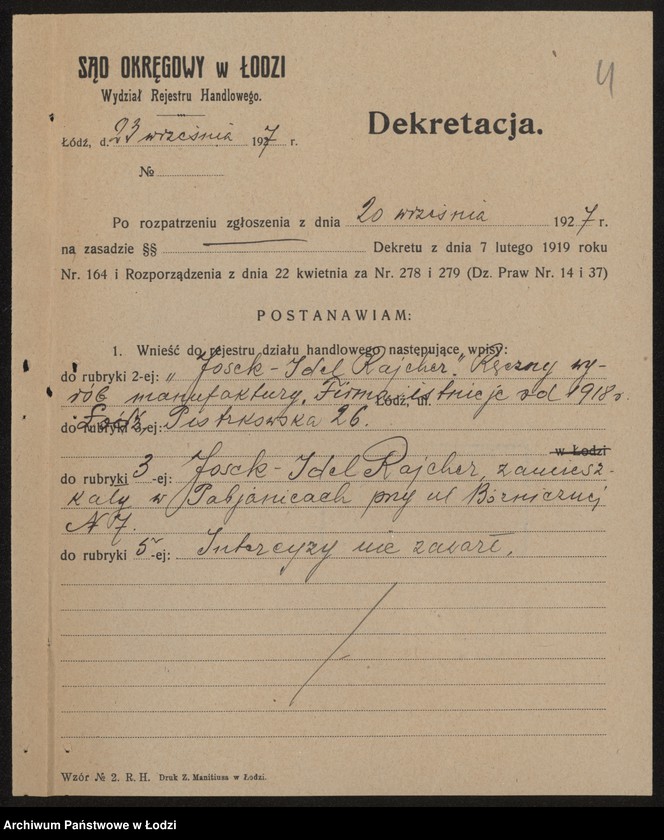 SĄD OKRĘGOWY w ŁODZI
4
Wydział Rejestru Handlowego.
Dekretacja.
Łódź, d. 23 września 1927 r.
№
Po rozpatrzeniu zgłoszenia z dnia 20 września 1927 r.
na zasadzie §§ Dekretu z dnia 7 lutego 1919 roku
Nr. 164 i Rozporządzenia z dnia 22 kwietnia za Nr. 278 i 279 (Dz. Praw Nr. 14 i 37)
POSTANAWIAM:
1. Wnieść do rejestru działu handlowego następujące wpisy:
do rubryki 2-ej: „Josek-Idel Rajcher." Ręczny wy-
rób manufaktury. Firma istnieje od 1918 r.
Łódź, ul.
do rubryki 3-ej: Łódź, Piotrkowska 26.
w Łodzi
do rubryki 3-ej: Josek-Idel Rajcher, zamiesz-
kały w Pabjanicach przy ul Bóżnicznej
N 7.
do rubryki 5-ej: Intercyzy nie zawarł.
Wzór № 2. R. H. Druk Z. Manitiusa w Łodzi.
Archiwum Państwowe w Łodzi